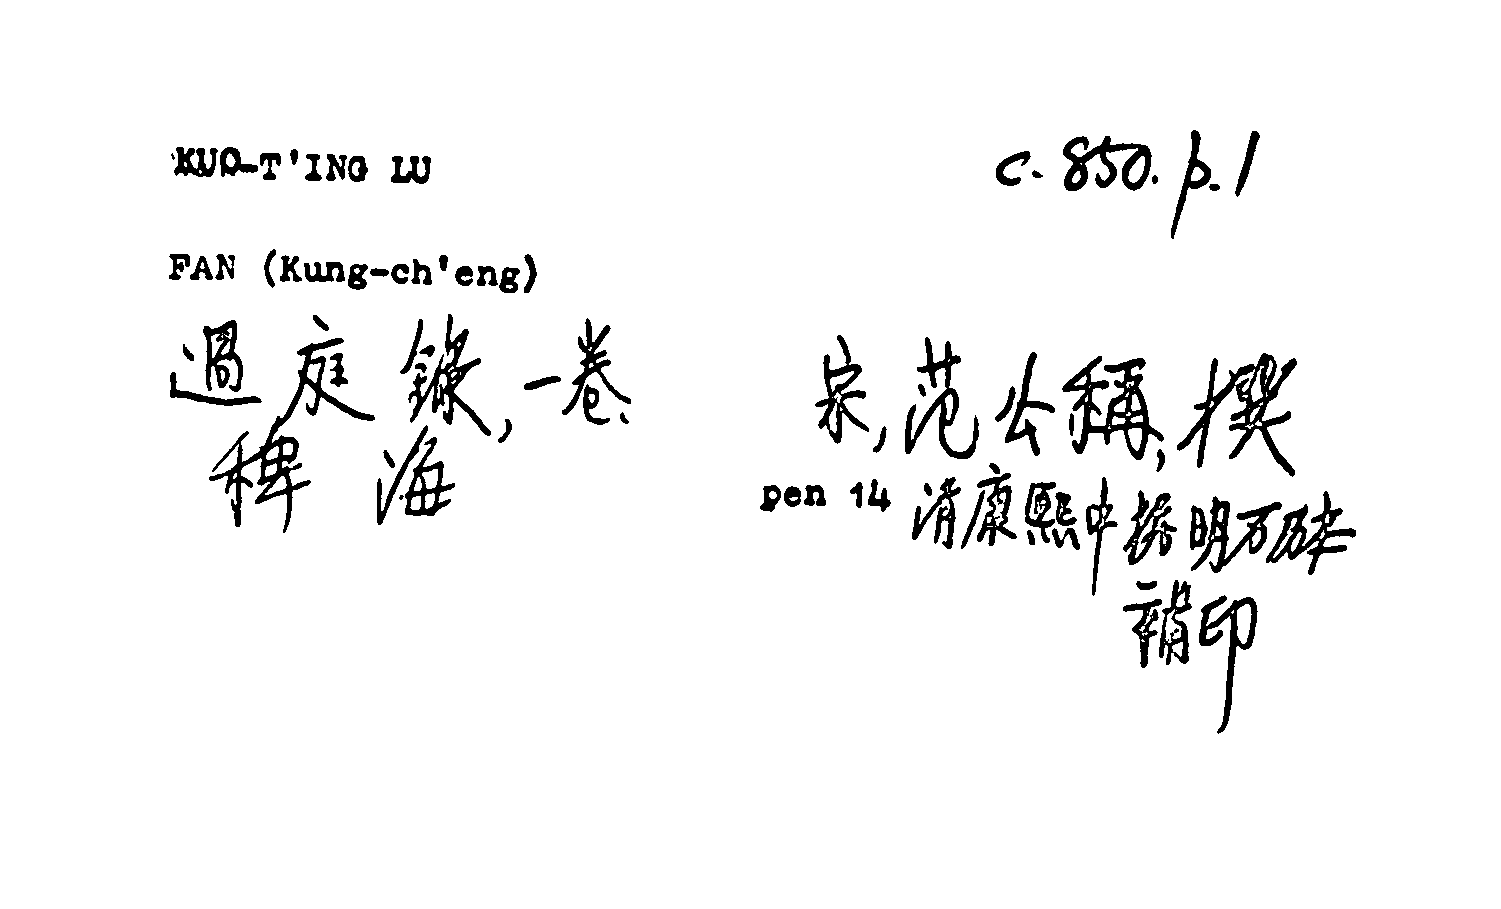 KUO-T'ING LU
c. 850. p. 1
FAN (Kung-ch'eng)
過庭錄, 一卷.
宋, 范公稱, 撰
稗海
pen 14 清康熙中振明万历本
補印